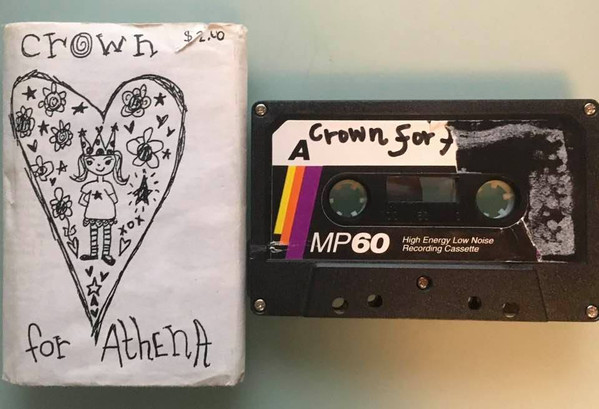 crown
$2.00
for AthenA
xox
A
crown for
MP60
High Energy Low Noise
Recording Cassette
60